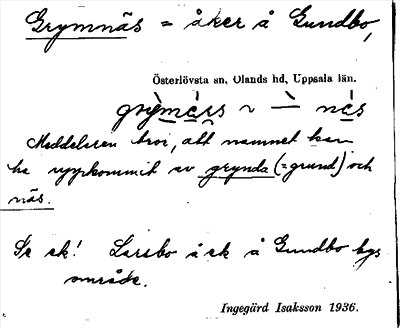 Grymnäs = åker å Gundbo,
Österlövsta sn, Olands hd, Uppsala län.
grỳmǻs ~ – nás
Meddelaren tror, att namnet kan
ha uppkommit av grynda (= grund) och
näs.
Se ek! Larsbo å ek å Gundbo bys
område.
Ingegärd Isaksson 1936.